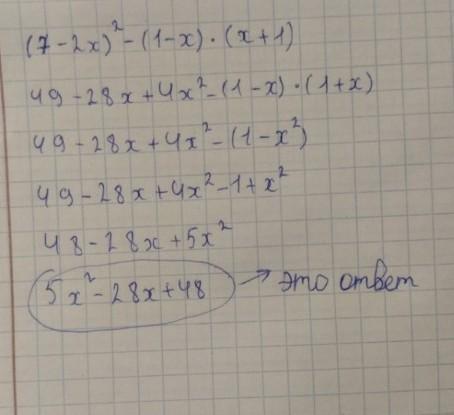 (7-2x)²-(1-x)·(x+1)
49-28x+4x²-(1-x)·(1+x)
49-28x+4x²-(1-x²)
49-28x+4x²-1+x²
48-28x+5x²
5x²-28x+48 → это ответ